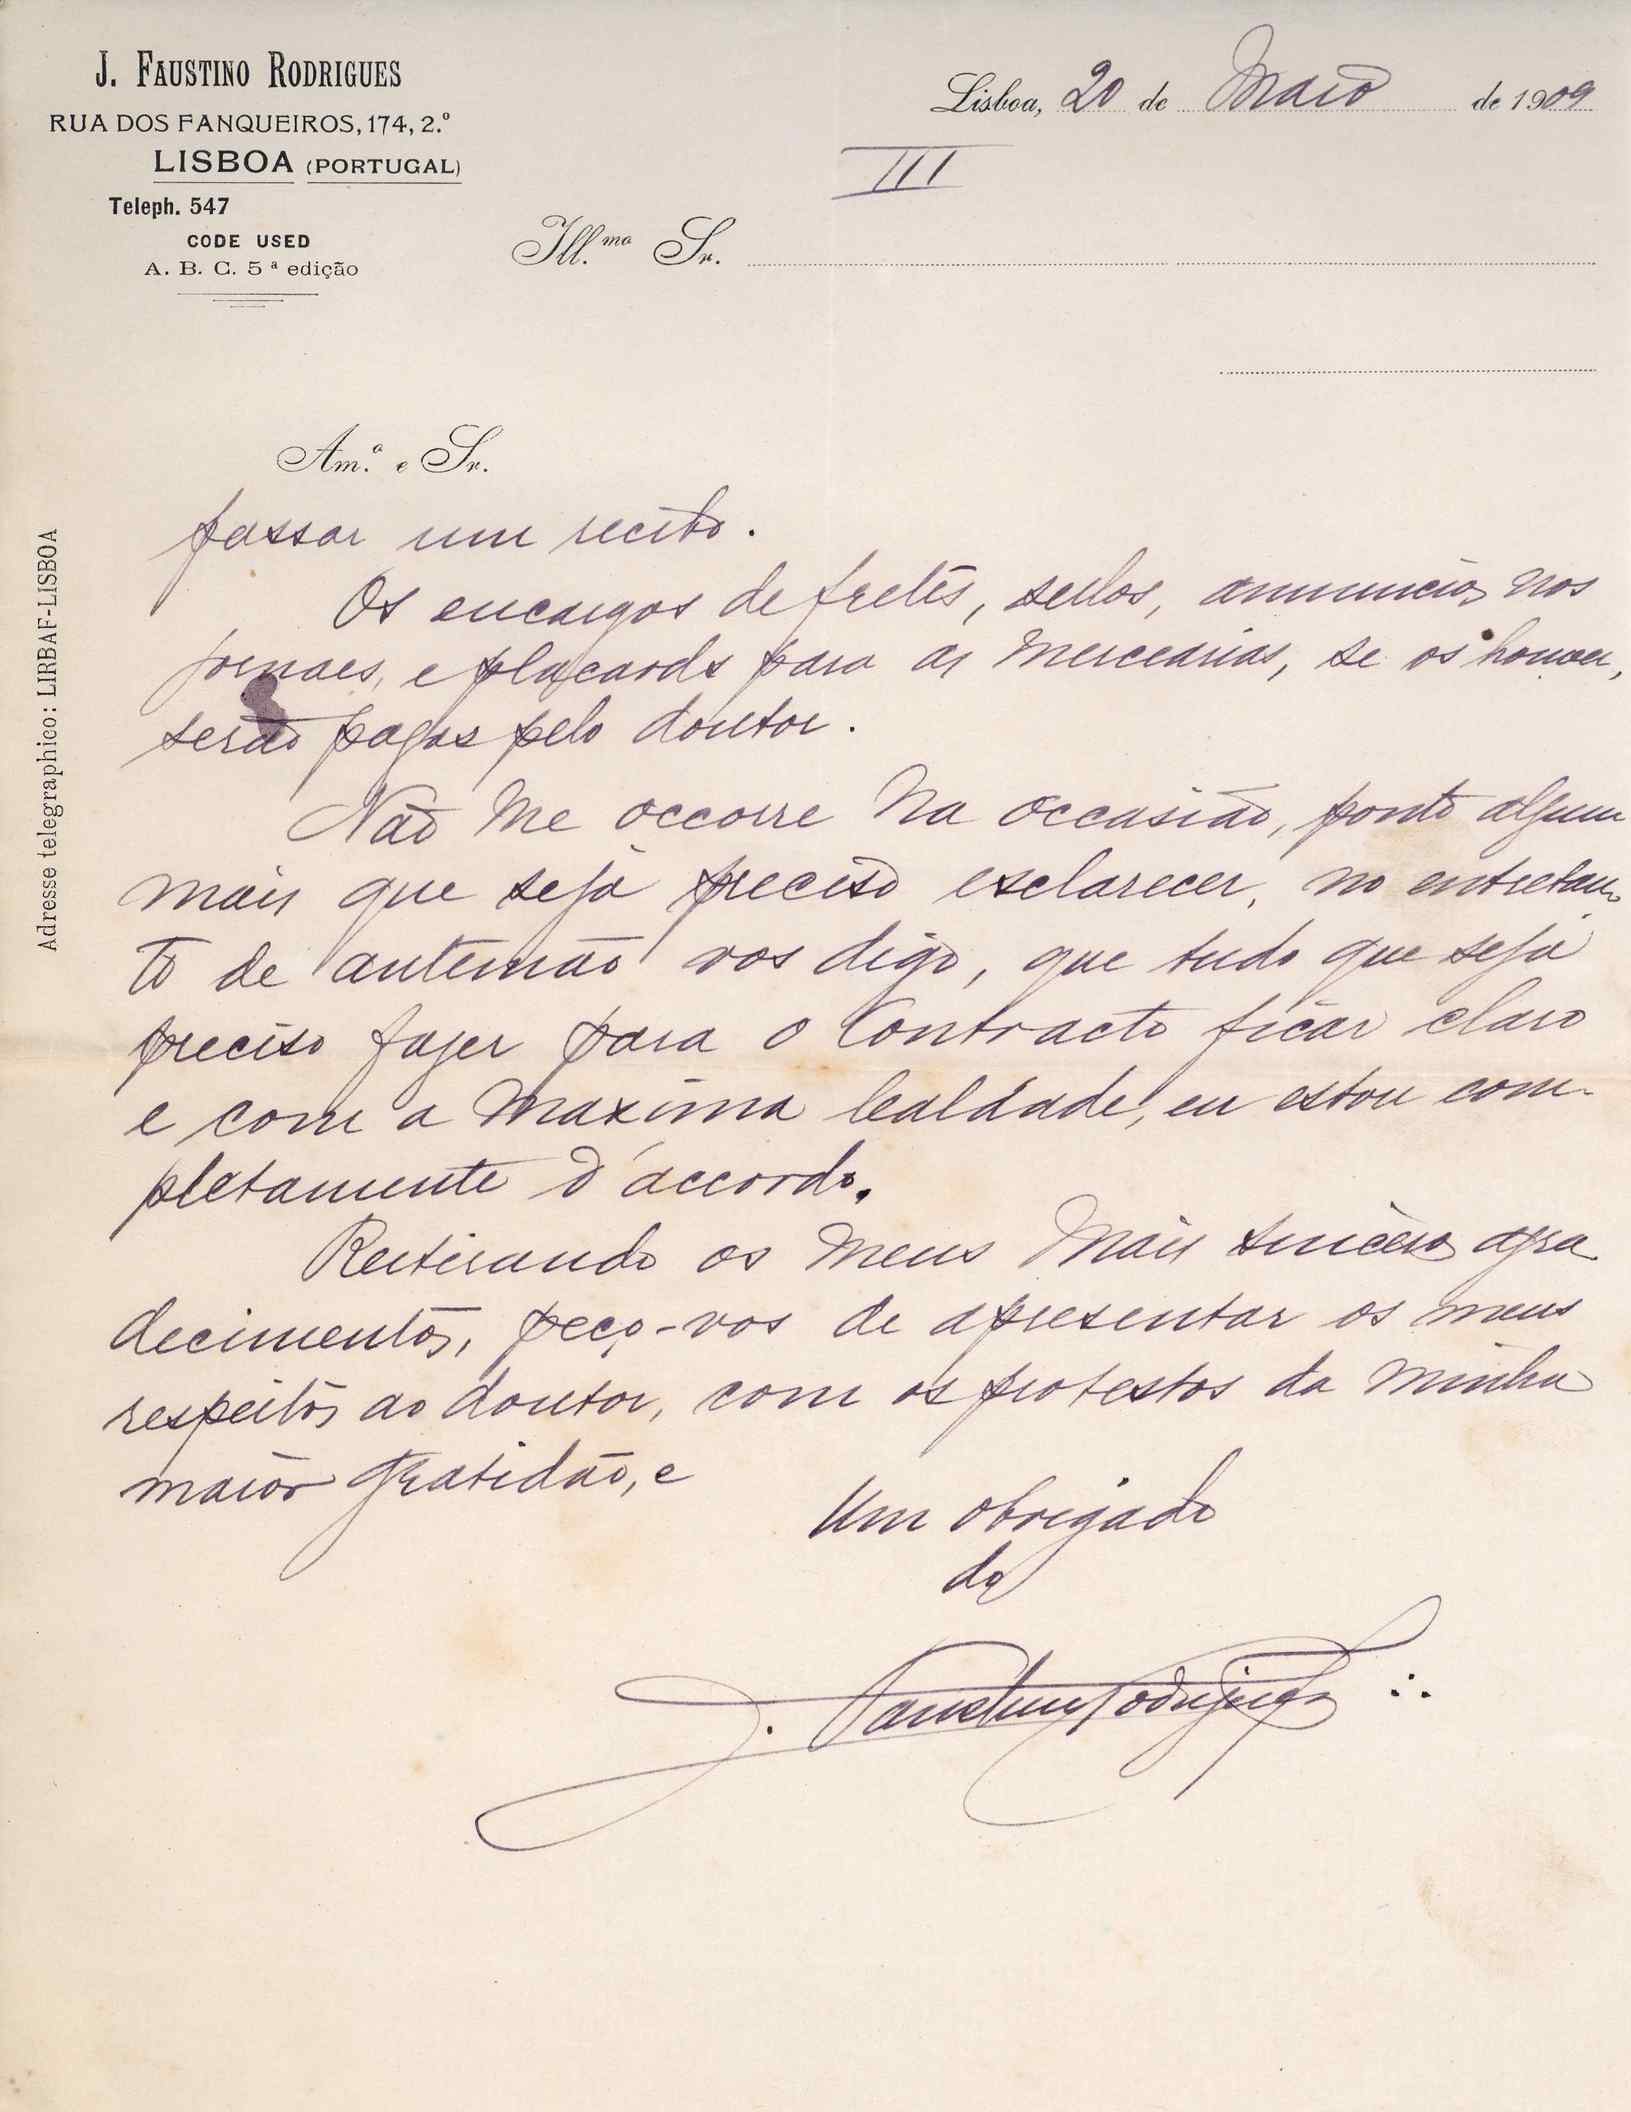 J. FAUSTINO RODRIGUES
RUA DOS FANQUEIROS, 174, 2.º
LISBOA (PORTUGAL)
Teleph. 547
CODE USED
A. B. C. 5ª edição
Lisboa, 20 de Maio de 1909
III
Ill.mo Sr.
Am.º e Sr.
Adresse telegraphico: LIRBAF-LISBOA
passar um recibo.
Os encargos de fretes, sellos, annuncios nos
jornaes, e placards para as mercearias, se os houver,
serão pagos pelo doutor.
Não me occorre na occasião, ponto algum
mais que seja preciso esclarecer, no entretan-
to de antemão vos digo, que tudo que seja
preciso fazer para o Contracto ficar claro
e com a maxima lealdade, eu estou com-
pletamente d'accordo.
Reiterando os meus mais sinceros agra-
decimentos, peço-vos de apresentar os meus
respeitos ao doutor, com os protestos da minha
maior gratidão, e
Um obrigado
do
J. Faustino Rodrigues ∴